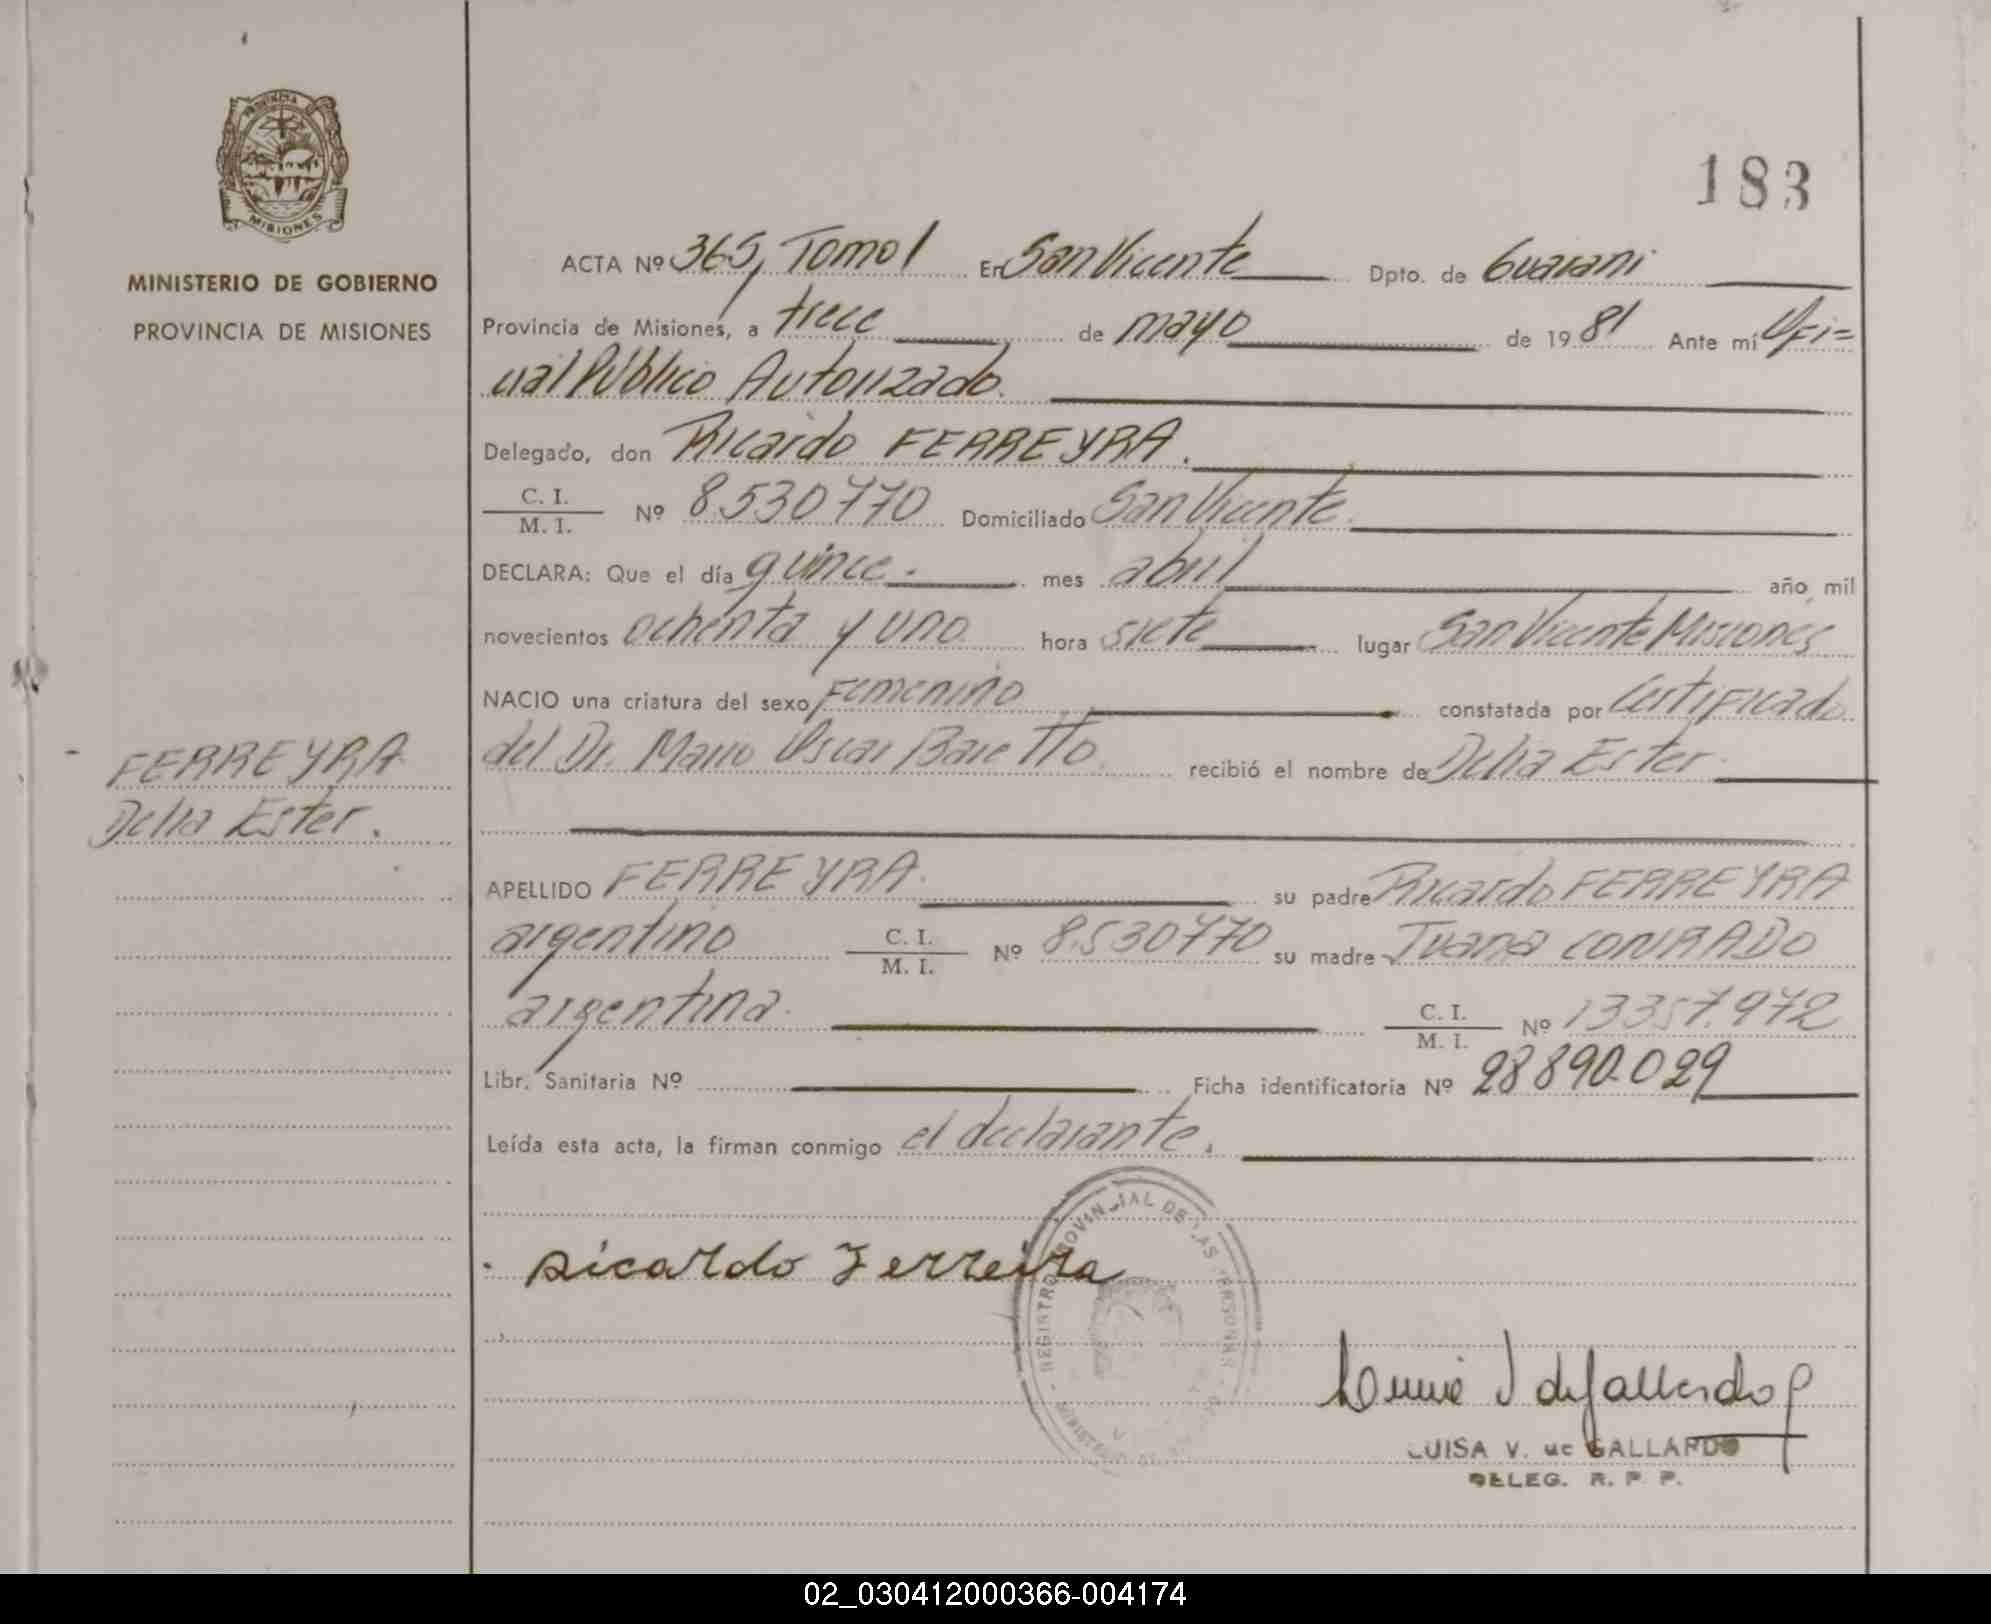 PROVINCIA
MISIONES
MINISTERIO DE GOBIERNO
PROVINCIA DE MISIONES
FERREYRA
Delia Ester.
183
ACTA Nº 365, Tomo I En San Vicente Dpto. de Guarani
Provincia de Misiones, a trece de mayo de 1981 Ante mí Ofi=
cial Público Autorizado.
Delegado, don Ricardo FERREYRA.
C. I. / M. I. Nº 8.530770 Domiciliado San Vicente.
DECLARA: Que el día quince. mes abril año mil
novecientos ochenta y uno hora siete lugar San Vicente Misiones
NACIO una criatura del sexo Femenino constatada por Certificado
del Dr. Mario Oscar Baretto. recibió el nombre de Delia Ester.
APELLIDO FERREYRA. su padre Ricardo FERREYRA
argentino C. I. / M. I. Nº 8.530770 su madre Juana CONRADO
argentina. C. I. / M. I. Nº 13357.972
Libr. Sanitaria Nº Ficha identificatoria Nº 28890.029
Leída esta acta, la firman conmigo el declarante.
Ricardo Ferreira
REGISTRO PROVINCIAL DE LAS PERSONAS
LUISA V. de GALLARDO
DELEG. R. P. P.
02_030412000366-004174